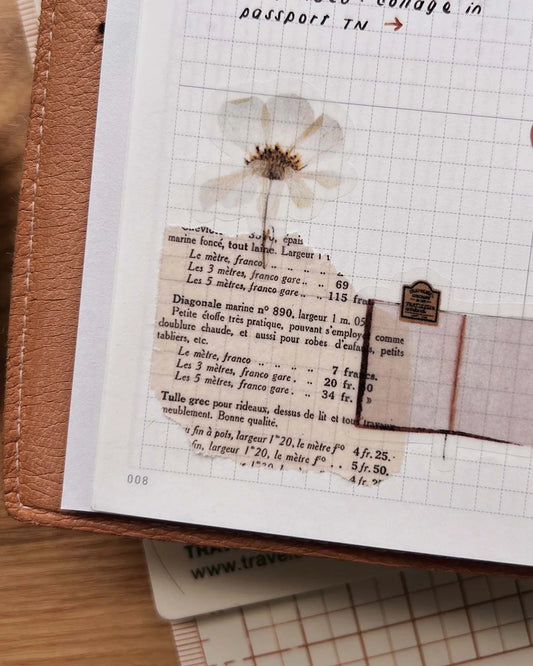 collage in
passport TN →
épais
marine foncé, tout laine. Largeur 1
Le mètre, franco
Les 3 mètres, franco gare .. 69
Les 5 mètres, franco gare .. 115 fra
Diagonale marine nº 890, largeur 1 m. 05
Petite étoffe très pratique, pouvant s'employer comme
doublure chaude, et aussi pour robes d'enfants, petits
tabliers, etc.
Le mètre, franco .. .. .. 7 francs.
Les 3 mètres, franco gare . . 20 fr. 0
Les 5 mètres, franco gare . . 34 fr. »
Tulle grec pour rideaux, dessus de lit et tout
meublement. Bonne qualité.
fin à pois, largeur 1m20, le mètre fco 4 fr. 25.
fin, largeur 1m20, le mètre fco . . 5 fr. 50.
4 fr.
008
TRA
www.trave